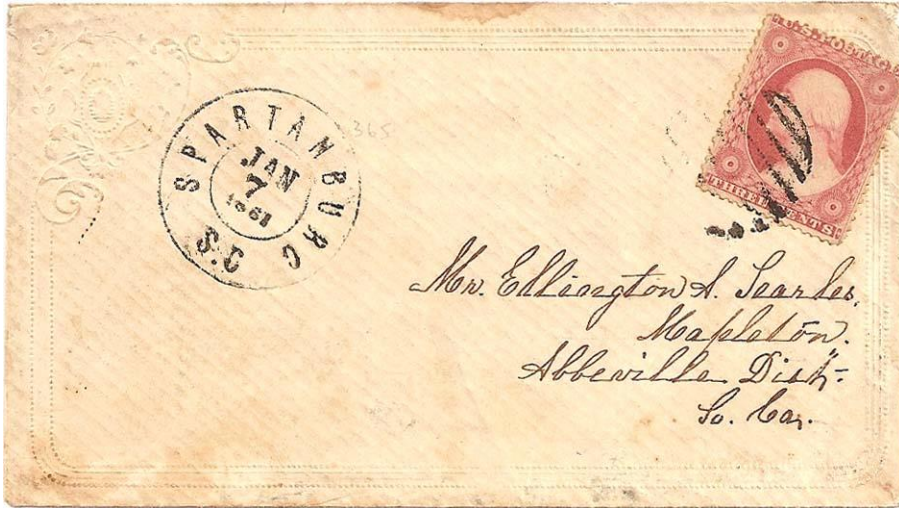 SPARTANBURG
JAN
7
1861
S.C
365
THREE CENTS
Mr. Ellington A. Searles,
Mapleton.
Abbeville Dist.
So. Car.